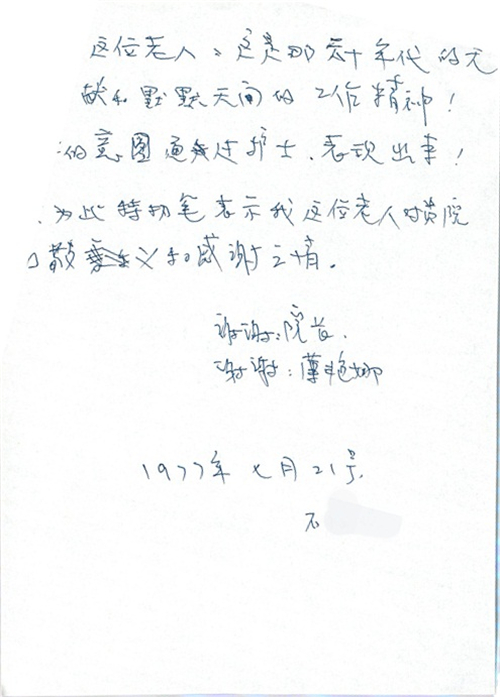 这位老人：这是那六十年代的无
献和默默无闻的工作精神！
的意图通过护士、表现出来！
为此特动笔表示我这位老人对贵院
散义和感谢之情.
谢谢：院长.
谢谢：薄艳娜
1977年七月21号.
石